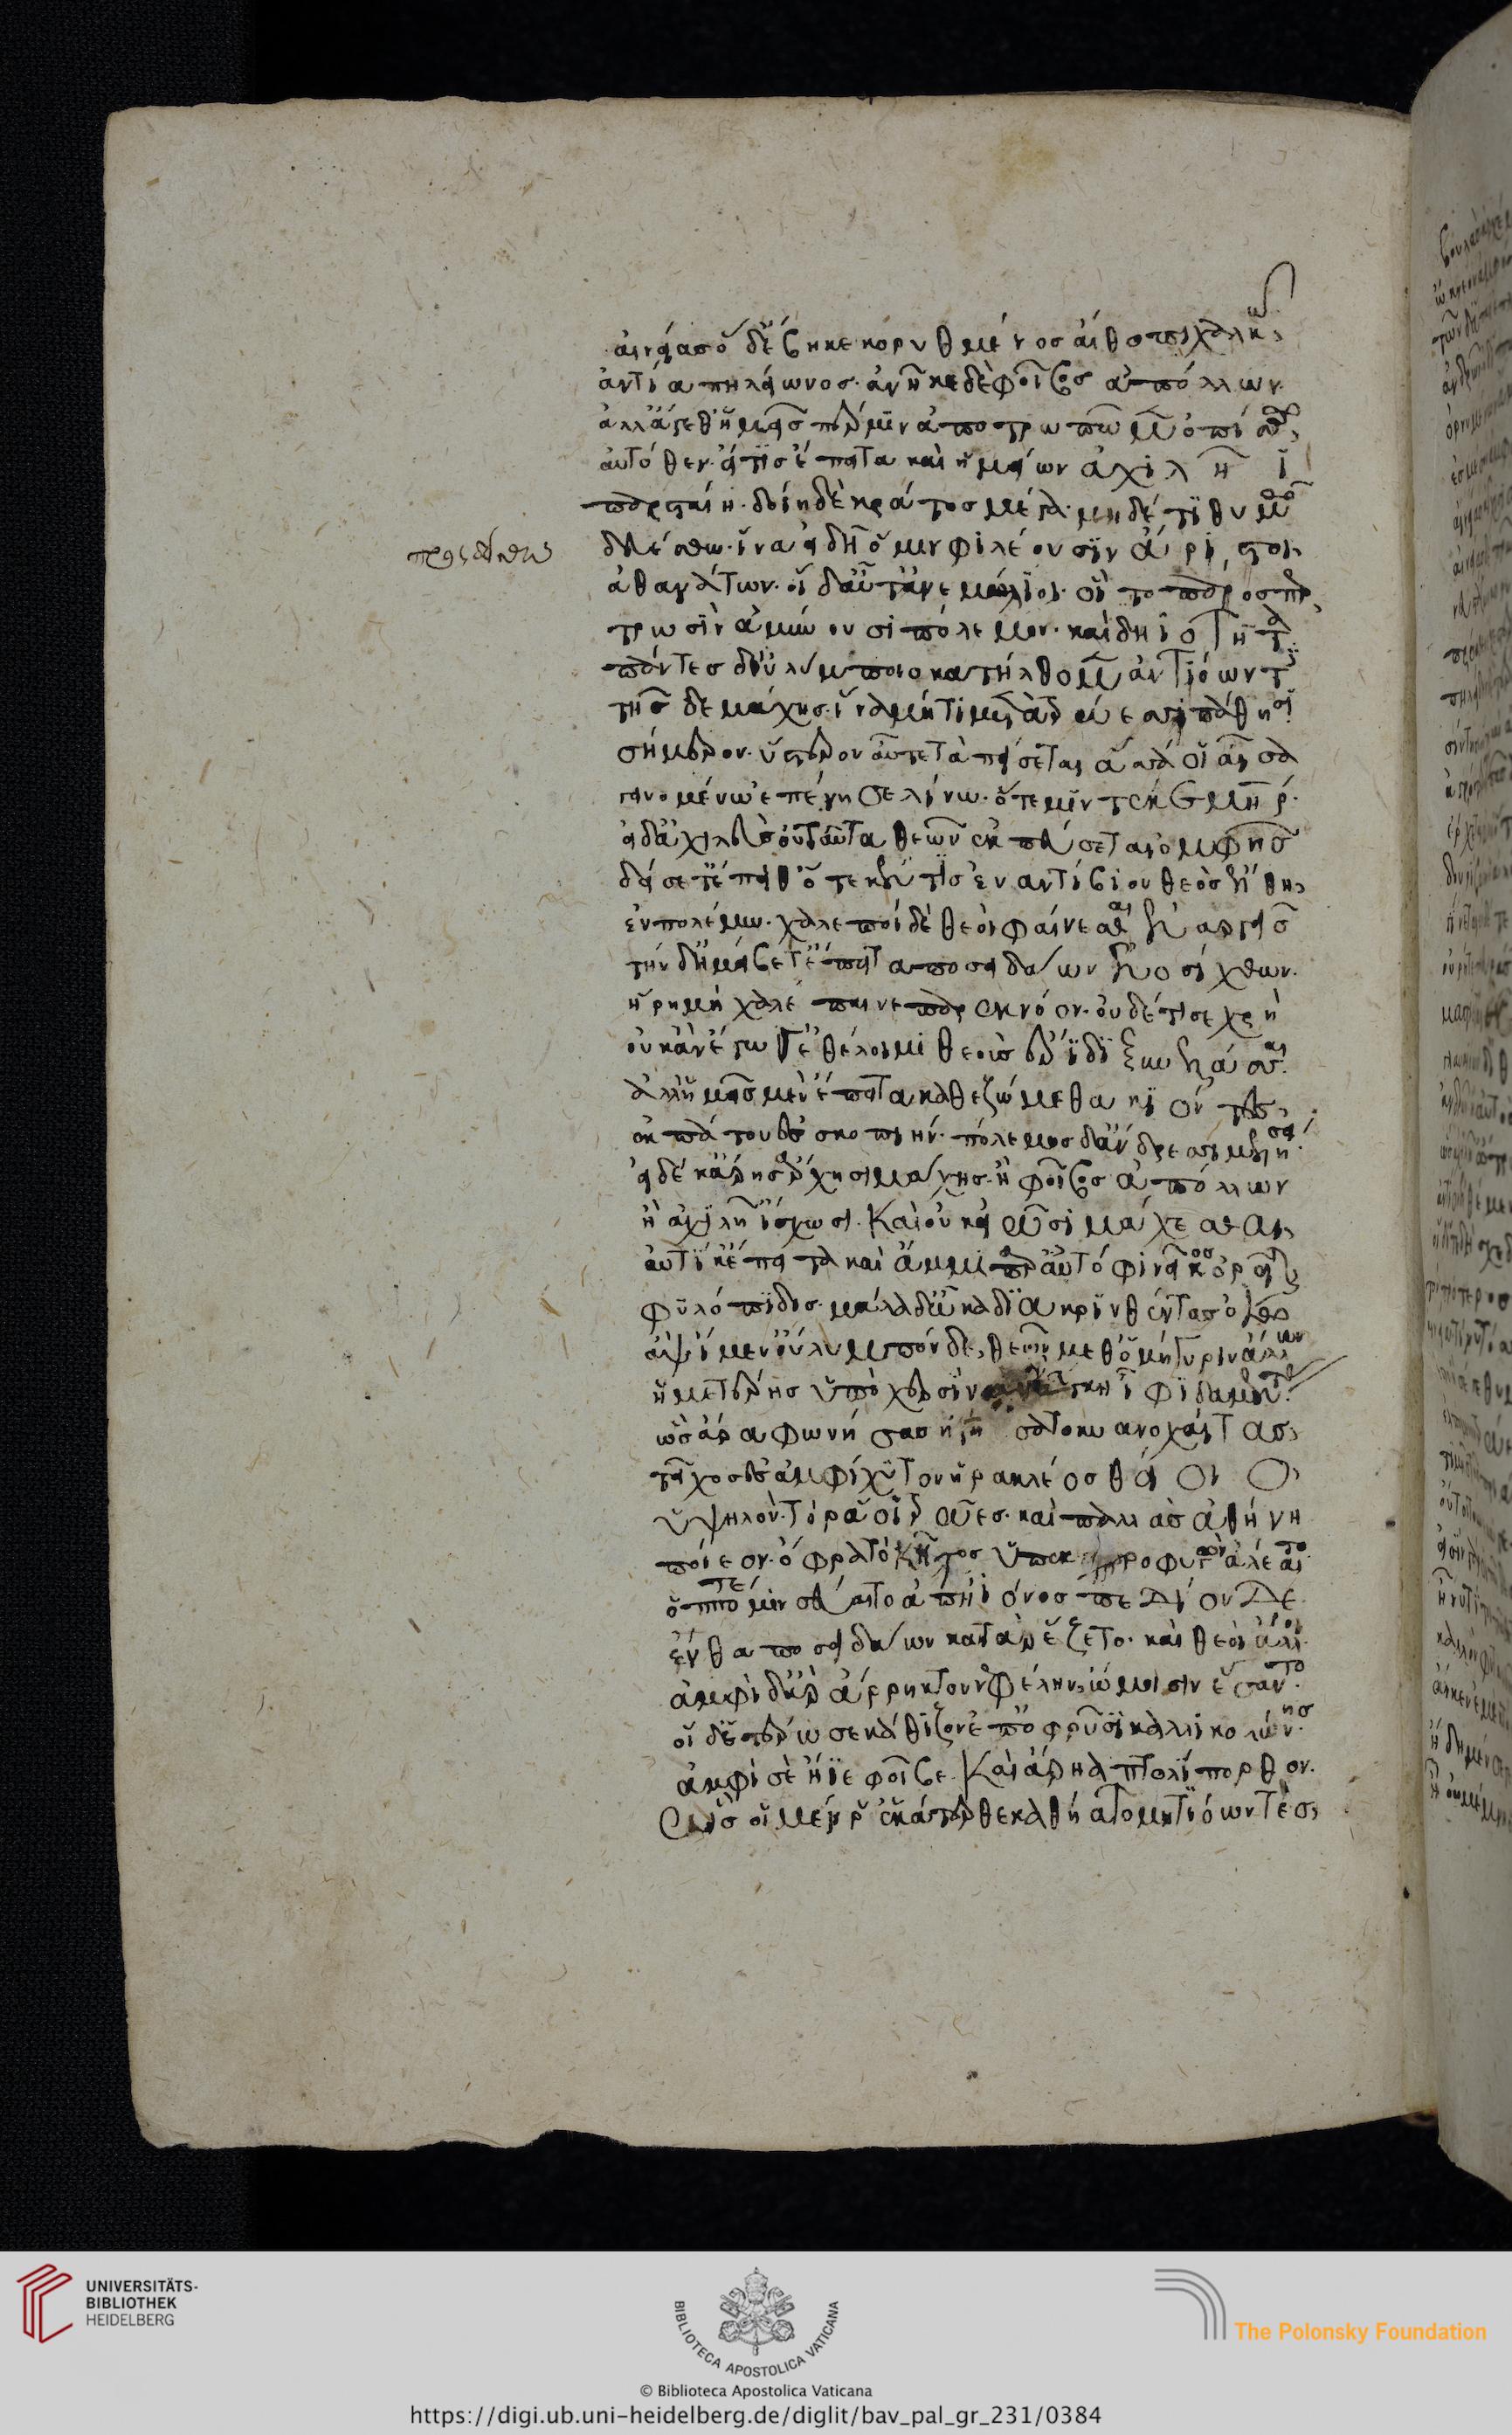 αἰνείασ ὅδ' ἔβη κεκορυθμένοσ αἴθοπι χαλκῶ,
ἀντία πηλείωνοσ. ἀνῆκε δὲ φοῖβοσ ἀπόλλων.
ἀλλ' ἄγεθ' ἡμεῖσ πέρ μϊν ἀποτρωπῶμεν ὀπίσσω,
αὐτόθεν. ἤ τϊσ ἔπειτα καὶ ἡμείων ἀχιλῆϊ
παρσταίη. δοίη δὲ κράτοσ μέγα. μηδέ τϊ θυμῶ
δευέσθω. ἵνα εἰδῆ ὅ μιν φιλέουσϊν ἄριστοι
πρὸς τὸ ἄνω
ἀθανάτων. οἵ δ' αὖτ' ἀνεμώλϊοι. οἳ το παροσπερ,
τρωσὶν ἀμύνουσι πόλεμον. καὶ δηϊοτῆτα
πάντεσ δ' οὐλύμποιο κατήλθομεν ἀντϊόωντεσ
τῆσδε μάχησ. ἵνα μήτι μετὰ τρώεσσι πάθησι
σήμερον. ὕστερον αὖτε τὰ πείσεται ἅσσα οἷ αἶσα
γινομένω ἐπένησε λίνω. ὅτε μϊν τέκε μήτηρ.
εἰ δ' ἀχιλεὺσ οὐ ταῦτα θεῶν ἐκ πεύσεται ὀμφῆσ
δείσετ' ἔπειθ' ὅτε κέν τϊσ ἐναντίβιον θεὸσ ἔλθη,
ἐν πολέμω. χαλεποὶ δὲ θεοὶ φαίνεσθαι ἐναργεῖσ
τὴν δ' ἠμείβετ' ἔπειτα ποσειδάων ἐνοσίχθων.
ἥρη μὴ χαλέπαινε παρεκ νόον. οὐδέ τί σε χρὴ
οὐκ ἂν ἔγωγ' ἐθέλοιμι θεοὺσ ἔρϊδϊ ξυνελάσσαι.
ἀλλ' ἡμεῖσ μὲν ἔπειτα καθεζώμεθα κϊόντεσ,
ἐκ πάτου ἐσ σκοπιήν. πόλεμοσ δ' ἄνδρεσσι μελήσει.
εἰ δέ κ' ἄρησ ἄρχησι μάχησ. ἢ φοῖβοσ ἀπόλλων
ἢ ἀχϊλῆ' ἴσχωσι. καὶ οὐκ εἰῶσι μάχεσθαι,
αὐτίκ' ἔπειτα καὶ ἄμμι παρ' αὐτόφι νεῖκοσ ὀρεῖται
φϋλόπϊδοσ. μάλα δ' ὦκα δϊακρϊνθέντασ ὀΐω
ἂψ ἴμεν οὔλυμπον δε, θεῶν μεθ' ὁμήγυριν ἄλλων
ἡμετέρησ ὑπὸ χερσὶν ἀνάγκηϊ φϊ δαμέντασ.
ὣσ ἄρα φωνήσασ ἡγήσατο κυανοχαίτασ,
τεῖχοσ ἐσ ἀμφίχϋτον ἡρακλέοσ θείοιο,
ὑψηλόν. τό ῥα οἷ τρῶεσ. καὶ παλλὰσ ἀθήνη
ποίεον. ὄφρα τὸ κῆτοσ ὑπεκπροφυγὼν ἀλέαιτο.
ὅππότέ μιν σεύαιτο ἀπ' ἠϊόνοσ πεδίονδε
ἔνθα ποσειδάων κατ' ἂρ ἕζετο. καὶ θεοὶ ἄλλοι.
ἀμφὶ δ' ἂρ ἄρρηκτον νεφέλην, ὤμοισιν ἕσαντο.
οἳ δ' ἑτέρωσε κάθϊζον ἐπ' ὀφρύσϊ καλλικολώνησ.
ἀμφί σὲ ἤϊε φοῖβε. καὶ ἄρηα πτολϊπορθον.
ὣσ οἳ μέν ῥ' ἑκάτερθε καθήατο μητϊόωντεσ,
UNIVERSITÄTS-
BIBLIOTHEK
HEIDELBERG
BIBLIOTECA APOSTOLICA VATICANA
The Polonsky Foundation
© Biblioteca Apostolica Vaticana
https://digi.ub.uni-heidelberg.de/diglit/bav_pal_gr_231/0384